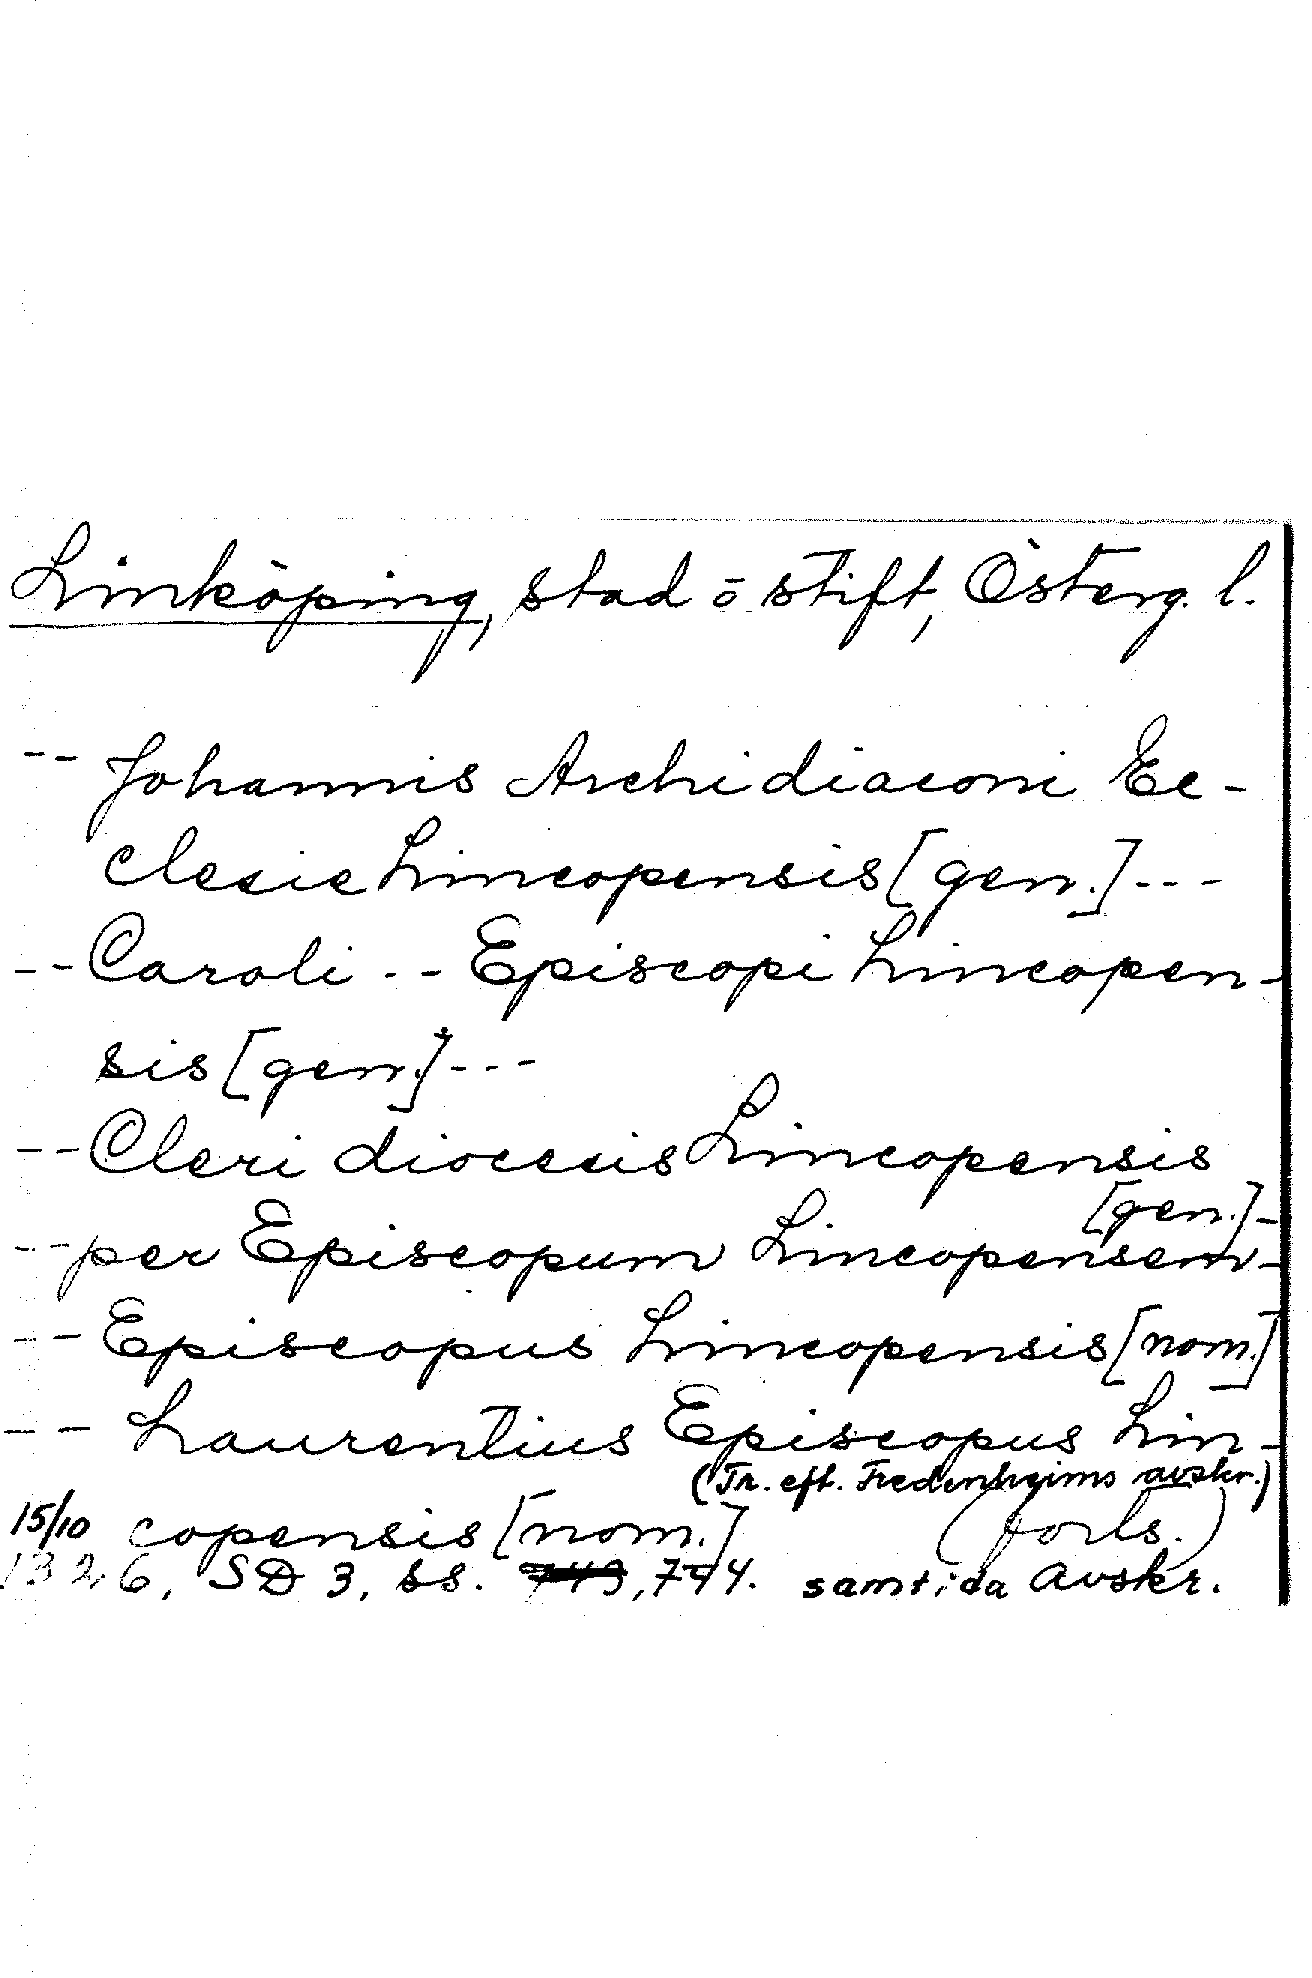 Linköping, stad o stift, Österg. l.
-- Johannis Archidiaconi Ec-
clesie Lincopensis [gen.] ---
-- Caroli -- Episcopi Lincopen-
sis [gen.] ---
-- Cleri diocesis Lincopensis
[gen.] -
-- per Episcopum Lincopensem -
-- Episcopus Lincopensis [nom.]
-- Laurentius Episcopus Lin-
(Tr. eft. Fredenheims avskr.)
15/10 copensis [nom.] (forts.)
1326, SD 3, ss. 743, 744. samtida avskr.